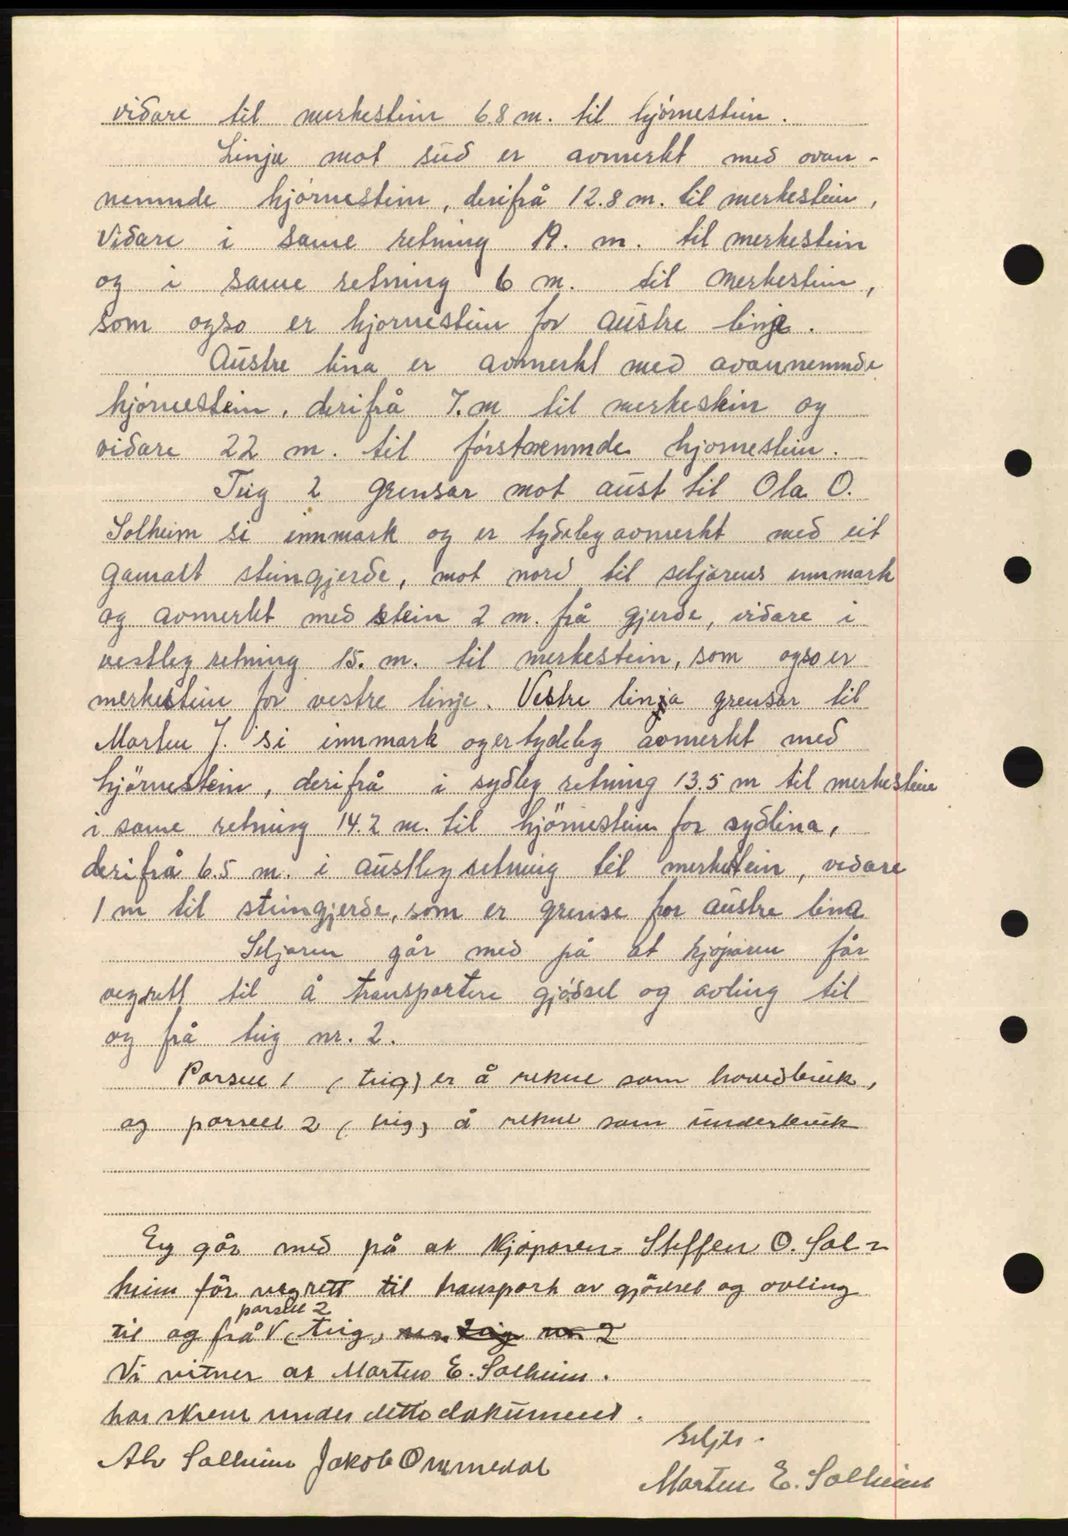 viðare til merkestein 6.8 m. til hjørnestein.
Linja mot sud er avmerkt med ovan-
nemnde hjørnestein, derifrå 12.8 m. til merkestein,
viðare i same retning 19. m. til merkestein
og i same retning 6 m. til merkestein,
som ogso er hjornestein for austre linje.
Austre lina er avmerkt med avannemnde
hjørnestein, derifrå 7. m til merkestein og
viðare 22 m. til fórstnemnde hjornestein.
Teig 2 grensar mot aust til Ola O.
Solheim si innmark og er tydeleg avmerkt með eit
gamalt steingjerde, mot nord til seljarens innmark
og avmerkt með stein 2 m. frå gjerde, viðare i
vestleg retning 15. m. til merkestein, som ogso er
merkestein for vestre linje. Vestre linja grensar til
Morten J. si innmark og er tydeleg avmerkt með
hjörnestein, derifrå i sydleg retning 13.5 m til merkestein
i same retning 14.2 m. til hjörnestein for sydlina,
derifrå 6.5 m. i austleg retning til merkestein, viðare
1 m til steingjerde, som er grense for austre lina
Seljaren går með på at kjøparen får
vegrett til å transportere gjødsel og avling til
og frå teig nr. 2.
Parsell 1 (teig) er å rekne som hovedbruk,
og parsell 2 (teig) å rekne som underbruk
Eg går með på at kjøparen Steffen O. Sol=
heim får vegrett til transport av gjödsel og avling
parsell 2
til og frå V (teig, 2
Vi vitner at Morten E. Solheim.
har skreve under dette dokument.
Seljer.
Alv Solheim Jakob Ommedal
Morten E. Solheim